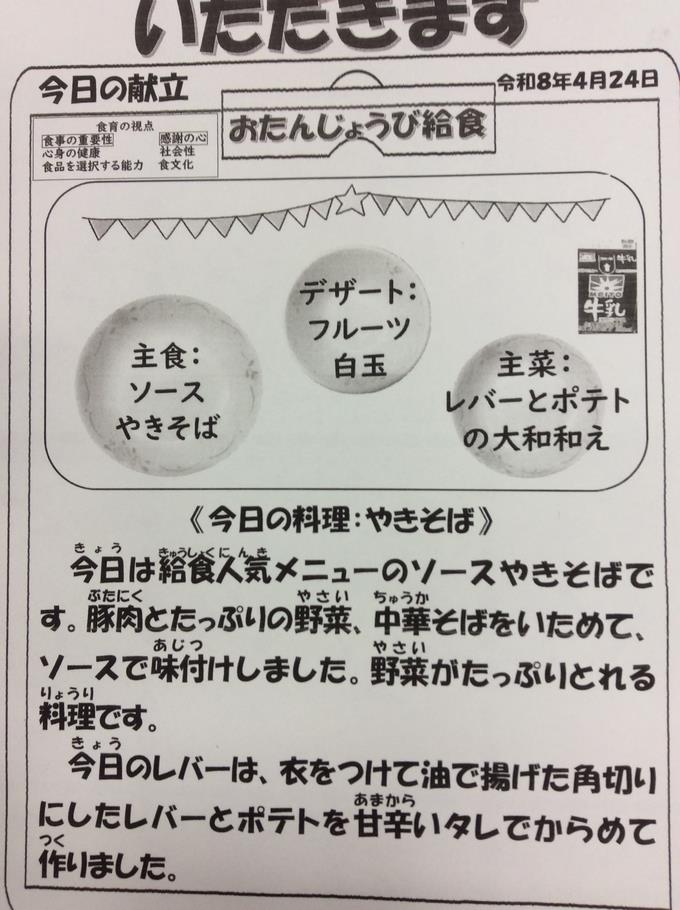 いただきます
今日の献立
令和8年4月24日
おたんじょうび給食
食育の視点
食事の重要性 感謝の心
心身の健康 社会性
食品を選択する能力 食文化
デザート:
フルーツ
白玉
主食:
ソース
やきそば
主菜:
レバーとポテト
の大和和え
牛乳
MEITO
牛乳
《今日の料理:やきそば》
きょう きゅうしょくにんき
今日は給食人気メニューのソースやきそばで
ぶたにく やさい ちゅうか
す。豚肉とたっぷりの野菜、中華そばをいためて、
あじつ やさい
ソースで味付けしました。野菜がたっぷりとれる
りょうり
料理です。
きょう
今日のレバーは、衣をつけて油で揚げた角切り
あまから
にしたレバーとポテトを甘辛いタレでからめて
つく
作りました。